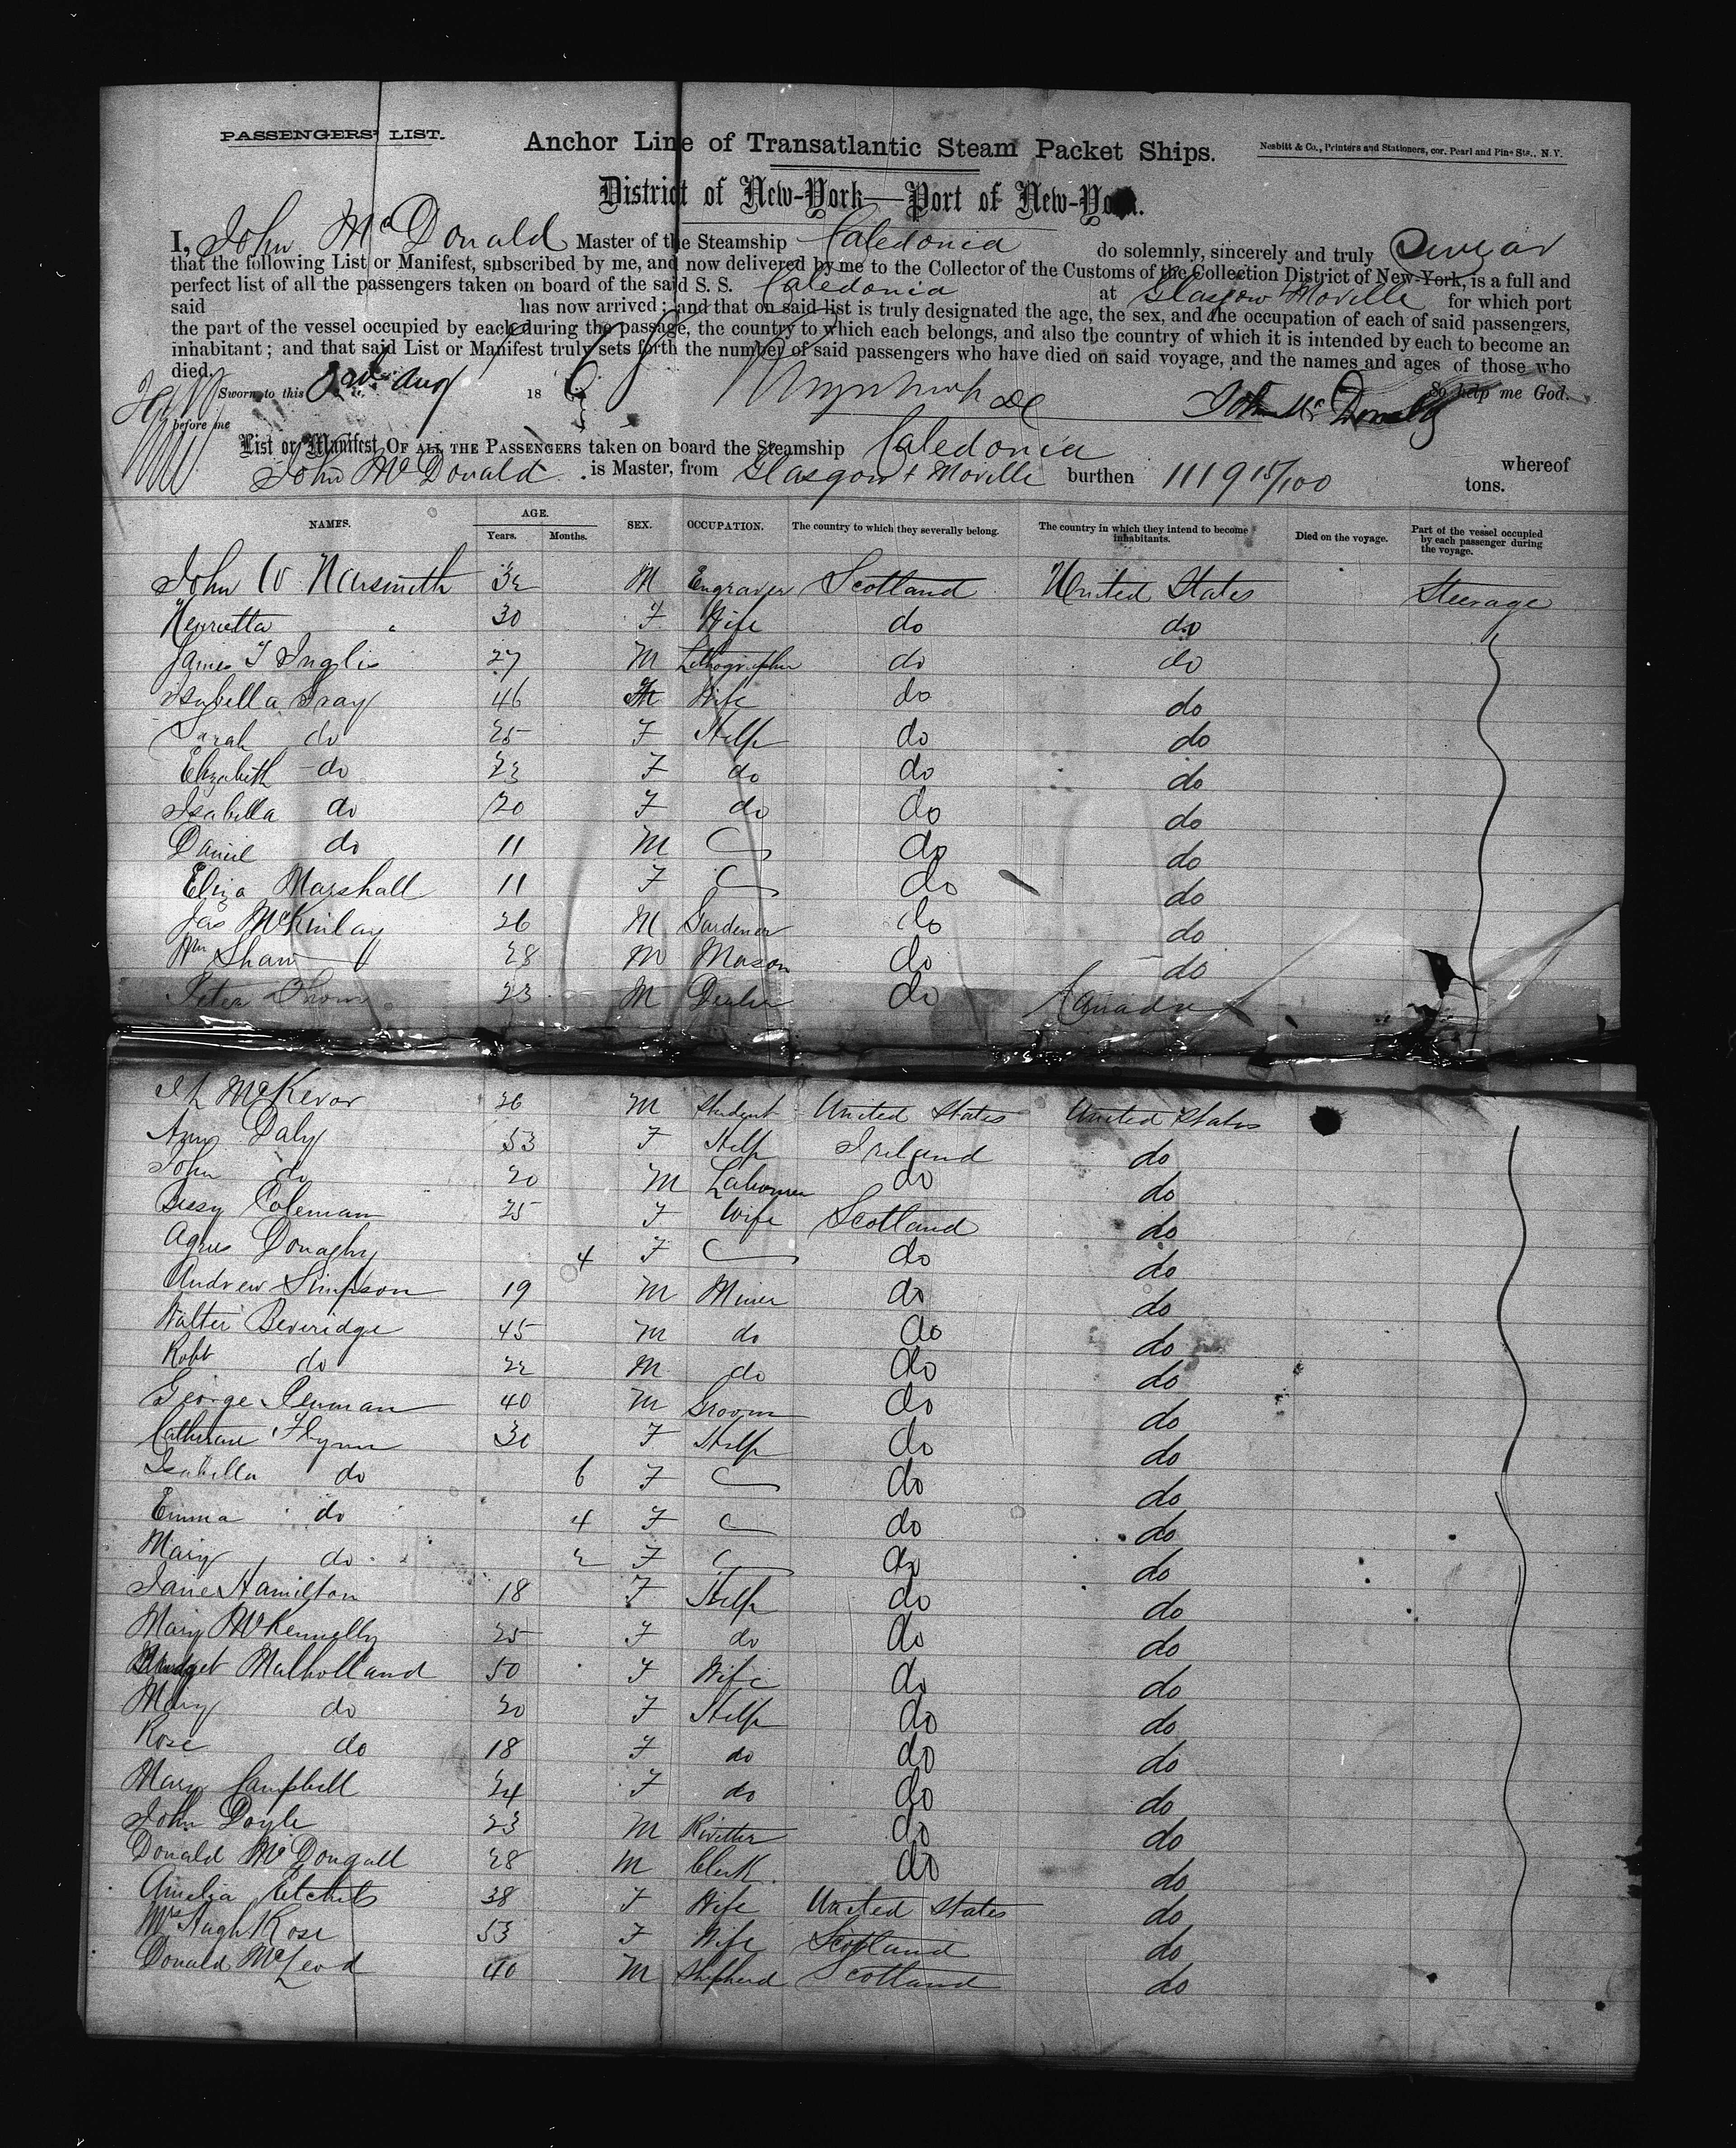 PASSENGERS' LIST.
Anchor Line of Transatlantic Steam Packet Ships.
Nesbitt & Co., Printers and Stationers, cor. Pearl and Pine Sts., N. Y.
District of New-York—Port of New-York.
I, John McDonald Master of the Steamship Caledonia do solemnly, sincerely and truly Swear
that the following List or Manifest, subscribed by me, and now delivered by me to the Collector of the Customs of the Collection District of New-York, is a full and
perfect list of all the passengers taken on board of the said S. S. Caledonia at Glasgow Moville for which port
said has now arrived; and that on said list is truly designated the age, the sex, and the occupation of each of said passengers,
the part of the vessel occupied by each during the passage, the country to which each belongs, and also the country of which it is intended by each to become an
inhabitant; and that said List or Manifest truly sets forth the number of said passengers who have died on said voyage, and the names and ages of those who
died. So help me God.
Sworn to this Aug 186 John McDonald
before me
List or Manifest OF ALL THE PASSENGERS taken on board the Steamship Caledonia whereof
John McDonald is Master, from Glasgow + Moville burthen 1119 15/100 tons.
NAMES. AGE. Years. Months. SEX. OCCUPATION. The country to which they severally belong. The country in which they intend to become inhabitants. Died on the voyage. Part of the vessel occupied by each passenger during the voyage.
John W Nasmith 32 M Engraver Scotland United States Steerage
Henrietta " 30 F Wife do do
James T Inglis 27 M Lithographer do do
Isabella Gray 46 Wife do do
Sarah do 25 F Help do do
Elizabeth do 23 F do do do
Isabella do 20 F do do do
Daniel do 11 M do do
Eliza Marshall 11 F do do
Jas McKinlay 26 M Gardener do do
Wm Shaw 28 M Mason do do
Peter Thom 23 M Dealer do Canada
McKevor 26 M Student United States United States
Ann Daly 53 F Help Ireland do
John do 20 M Labourer do do
Bessy Coleman 25 F Wife Scotland do
Agnes Donaghy 4 F do do
Andrew Simpson 19 M Miner do do
Walter Beveridge 45 M do do do
Robt do 22 M do do do
George Penman 40 M Groom do do
Catherine Flynn 30 F Help do do
Isabella do 6 F do do
Emma do 4 F do do
Mary do 2 F do do
Jane Hamilton 18 F Help do do
Mary McKennelly 25 F do do do
Bridget Mulholland 50 F Wife do do
Mary do 20 F Help do do
Rose do 18 F do do do
Mary Campbell 24 F do do do
John Doyle 23 M Rivetter do do
Donald McDougall 28 M Clerk do do
Amelia Etchels 38 F Wife United States do
Mrs Hugh Rose 53 F Wife Scotland do
Donald McLeod 40 M Shepherd Scotland do